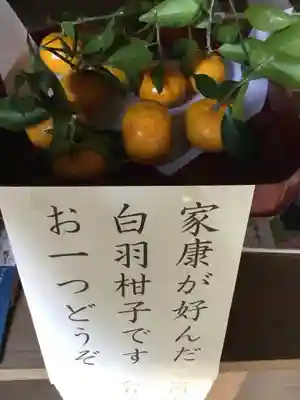 家康が好んだ
白羽柑子です
お一つどうぞ